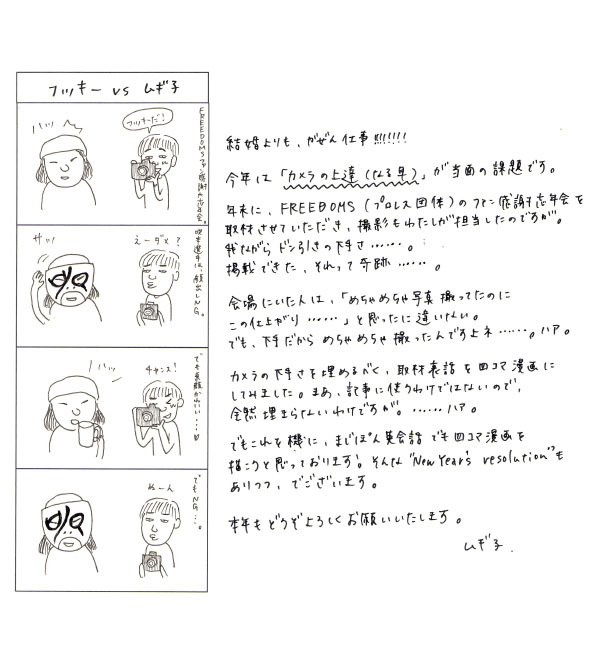 フッキー vs ムギ子
FREEDOMSファン感謝忘年会。
フッキーだ!
ハッ
吹本選手は、顔出しNG。
えーダメ?
サッ
でも素顔かわいい・・・♡
チャンス!
ハッ
でもNG…。
ぬーん
結婚よりも、がぜん仕事!!!!!!!
今年は「カメラの上達(なる早)」が当面の課題です。
年末に、FREEDOMS(プロレス団体)のファン感謝忘年会を
取材させていただき、撮影もわたしが担当したのですが。
我ながらドン引きの下手さ……。
掲載できた、それって奇跡……。
会場にいた人は、「めちゃめちゃ写真撮ってたのに
この仕上がり……」と思ったに違いない。
でも、下手だからめちゃめちゃ撮ったんですよネ……。ハァ。
カメラの下手さを埋めるべく、取材裏話を四コマ漫画に
してみました。まあ、記事に使うわけではないので、
全然埋まらないわけですが。……ハァ。
でもこれを機に、まじぽん英会話でも四コマ漫画を
描こうと思っております。そんな"New Year's resolution"も
ありつつ、でございます。
本年もどうぞよろしくお願いいたします。
ムギ子.